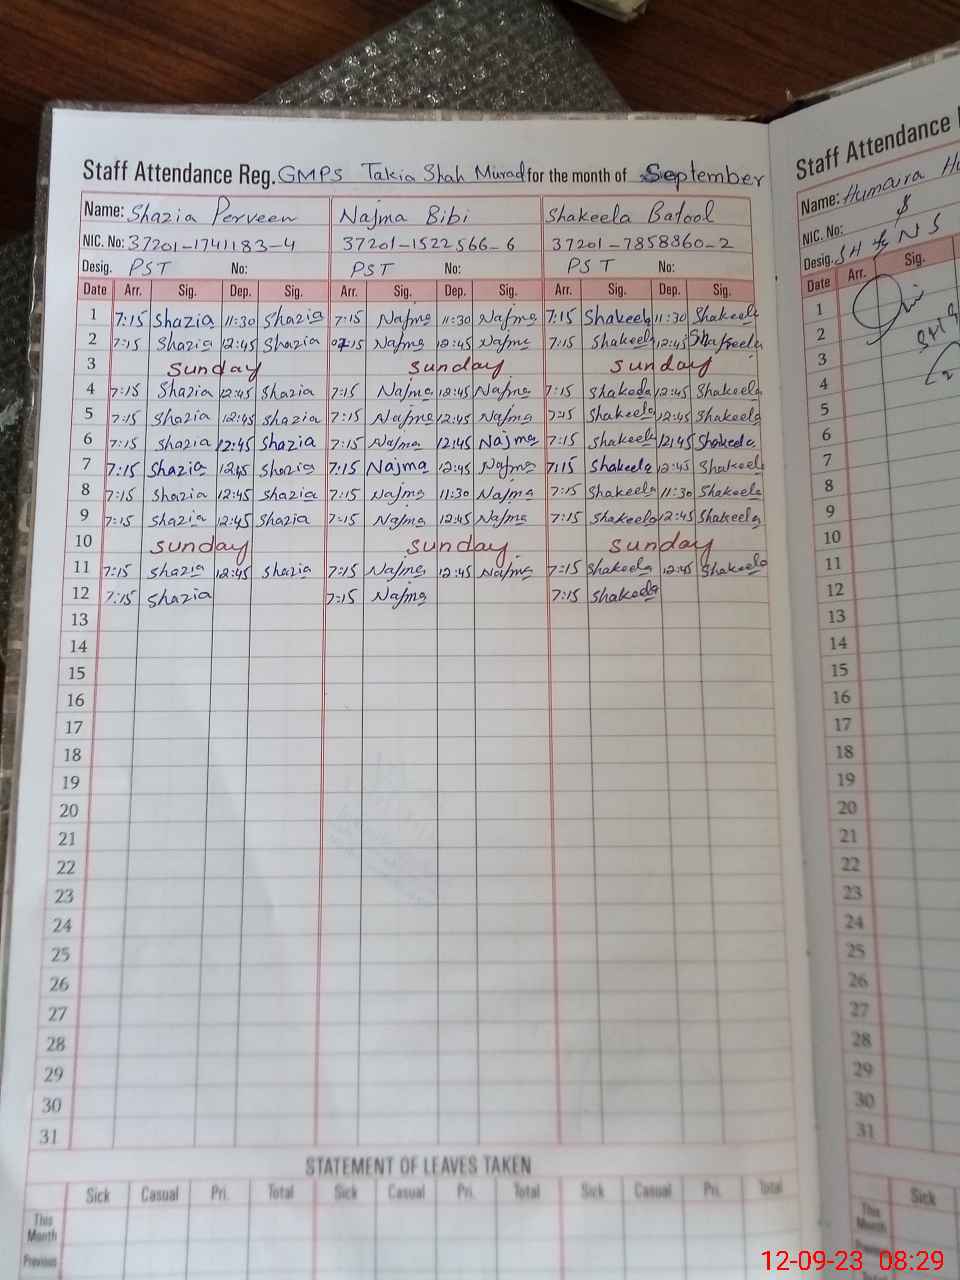 Staff Attendance Reg. GMPS Takia Shah Murad for the month of September
Name: Shazia Perveen Najma Bibi Shakeela Batool
NIC. No: 37201-1741183-4 37201-1522566-6 37201-7858860-2
Desig. PST No: PST No: PST No:
Date Arr. Sig. Dep. Sig. Arr. Sig. Dep. Sig. Arr. Sig. Dep. Sig.
1 7:15 Shazia 11:30 Shazia 7:15 Najma 11:30 Najma 7:15 Shakeela 11:30 Shakeela
2 7:15 Shazia 12:45 Shazia 07:15 Najma 12:45 Najma 7:15 Shakeela 12:45 Shakeela
3 Sunday Sunday Sunday
4 7:15 Shazia 12:45 Shazia 7:15 Najma 12:45 Najma 7:15 Shakeela 12:45 Shakeela
5 7:15 Shazia 12:45 Shazia 7:15 Najma 12:45 Najma 7:15 Shakeela 12:45 Shakeela
6 7:15 Shazia 12:45 Shazia 7:15 Najma 12:45 Najma 7:15 Shakeela 12:45 Shakeela
7 7:15 Shazia 12:45 Shazia 7:15 Najma 12:45 Najma 7:15 Shakeela 12:45 Shakeela
8 7:15 Shazia 12:45 Shazia 7:15 Najma 11:30 Najma 7:15 Shakeela 11:30 Shakeela
9 7:15 Shazia 12:45 Shazia 7:15 Najma 12:45 Najma 7:15 Shakeela 12:45 Shakeela
10 Sunday Sunday Sunday
11 7:15 Shazia 12:45 Shazia 7:15 Najma 12:45 Najma 7:15 Shakeela 12:45 Shakeela
12 7:15 Shazia 7:15 Najma 7:15 Shakeela
13
14
15
16
17
18
19
20
21
22
23
24
25
26
27
28
29
30
31
STATEMENT OF LEAVES TAKEN
Sick Casual Pri. Total Sick Casual Pri. Total Sick Casual Pri. Total
This Month
Previous
Staff Attendance
Name: Humaira
NIC. No:
Desig.
Date Arr. Sig.
1
2
3
4
5
6
7
8
9
10
11
12
13
14
15
16
17
18
19
20
21
22
23
24
25
26
27
28
29
30
31
Sick
This Month
Previous
12-09-23 08:29